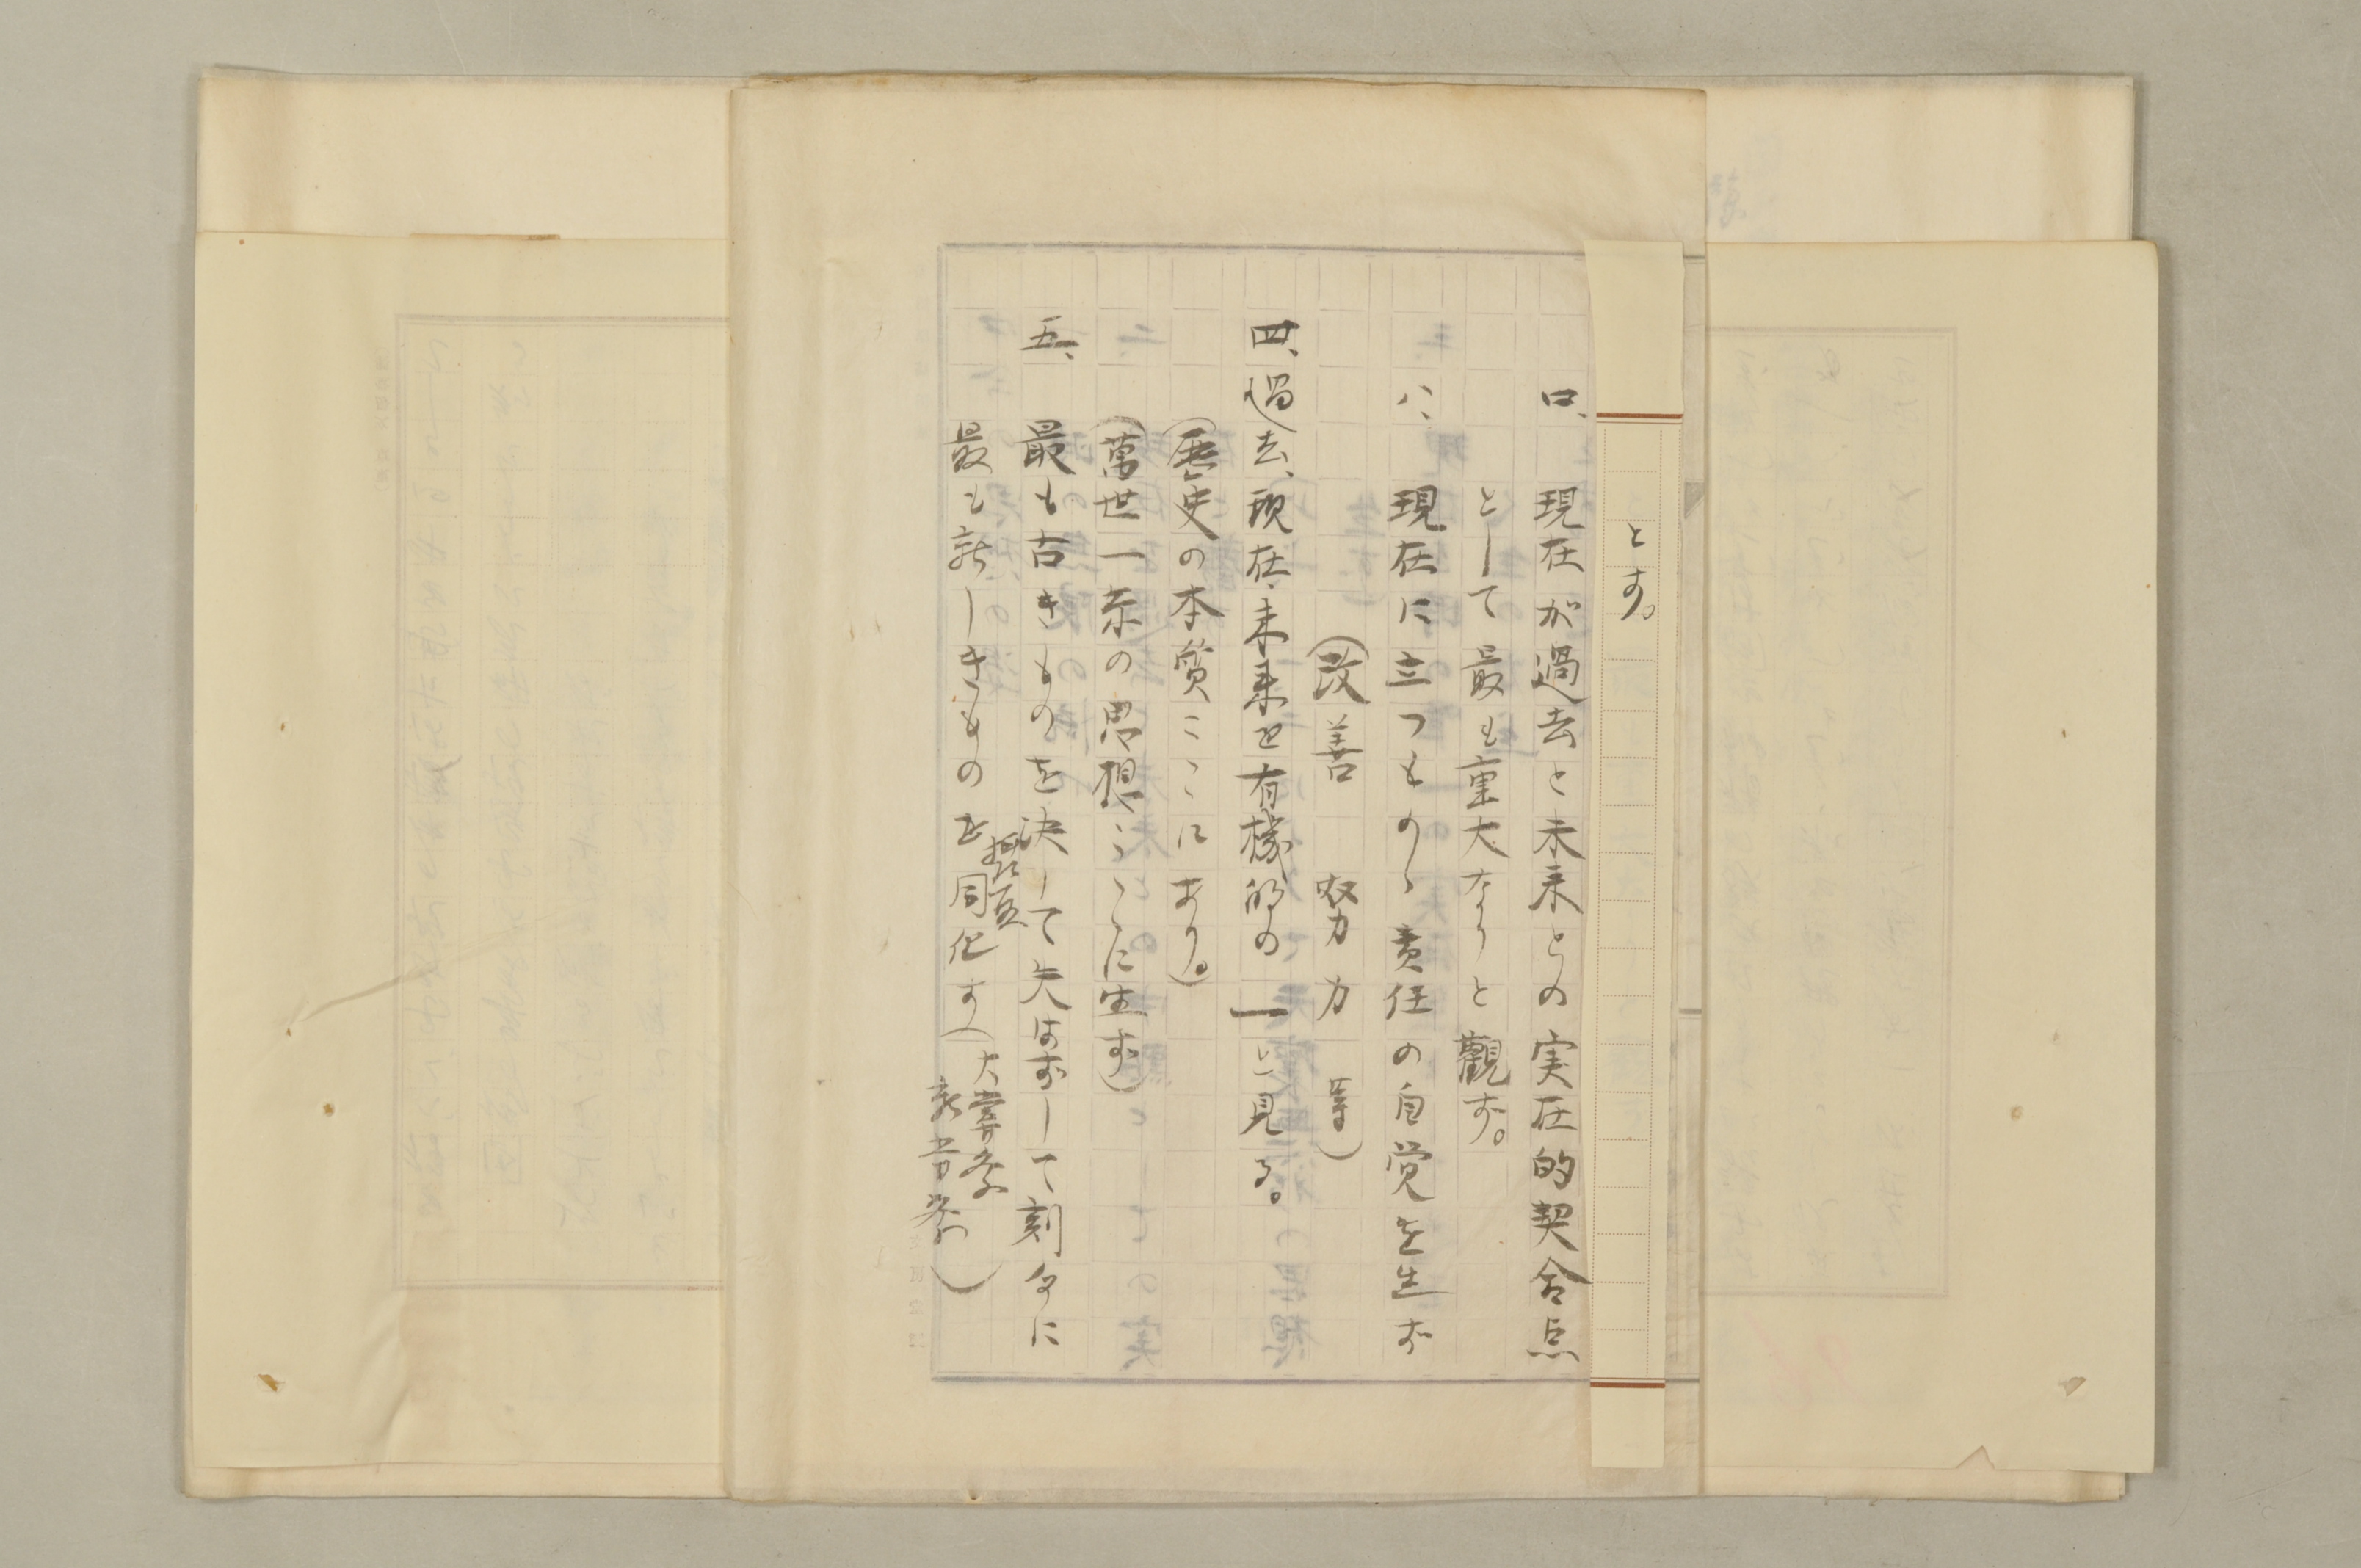 とす。
ロ、現在が過去と未来との実在的契合点
として最も重大なりと観ず。
ハ、現在に立つものゝ責任の自覚を生ず
(改善 努力 等)
四、過去、現在、未来を有機的の一と見る。
(歴史の本質こゝにあり。)
(萬世一系の思想こゝに生ず)
五、最も古きものを決して失はずして刻々に
最も新しきものを同化す
(大嘗祭
新嘗祭)